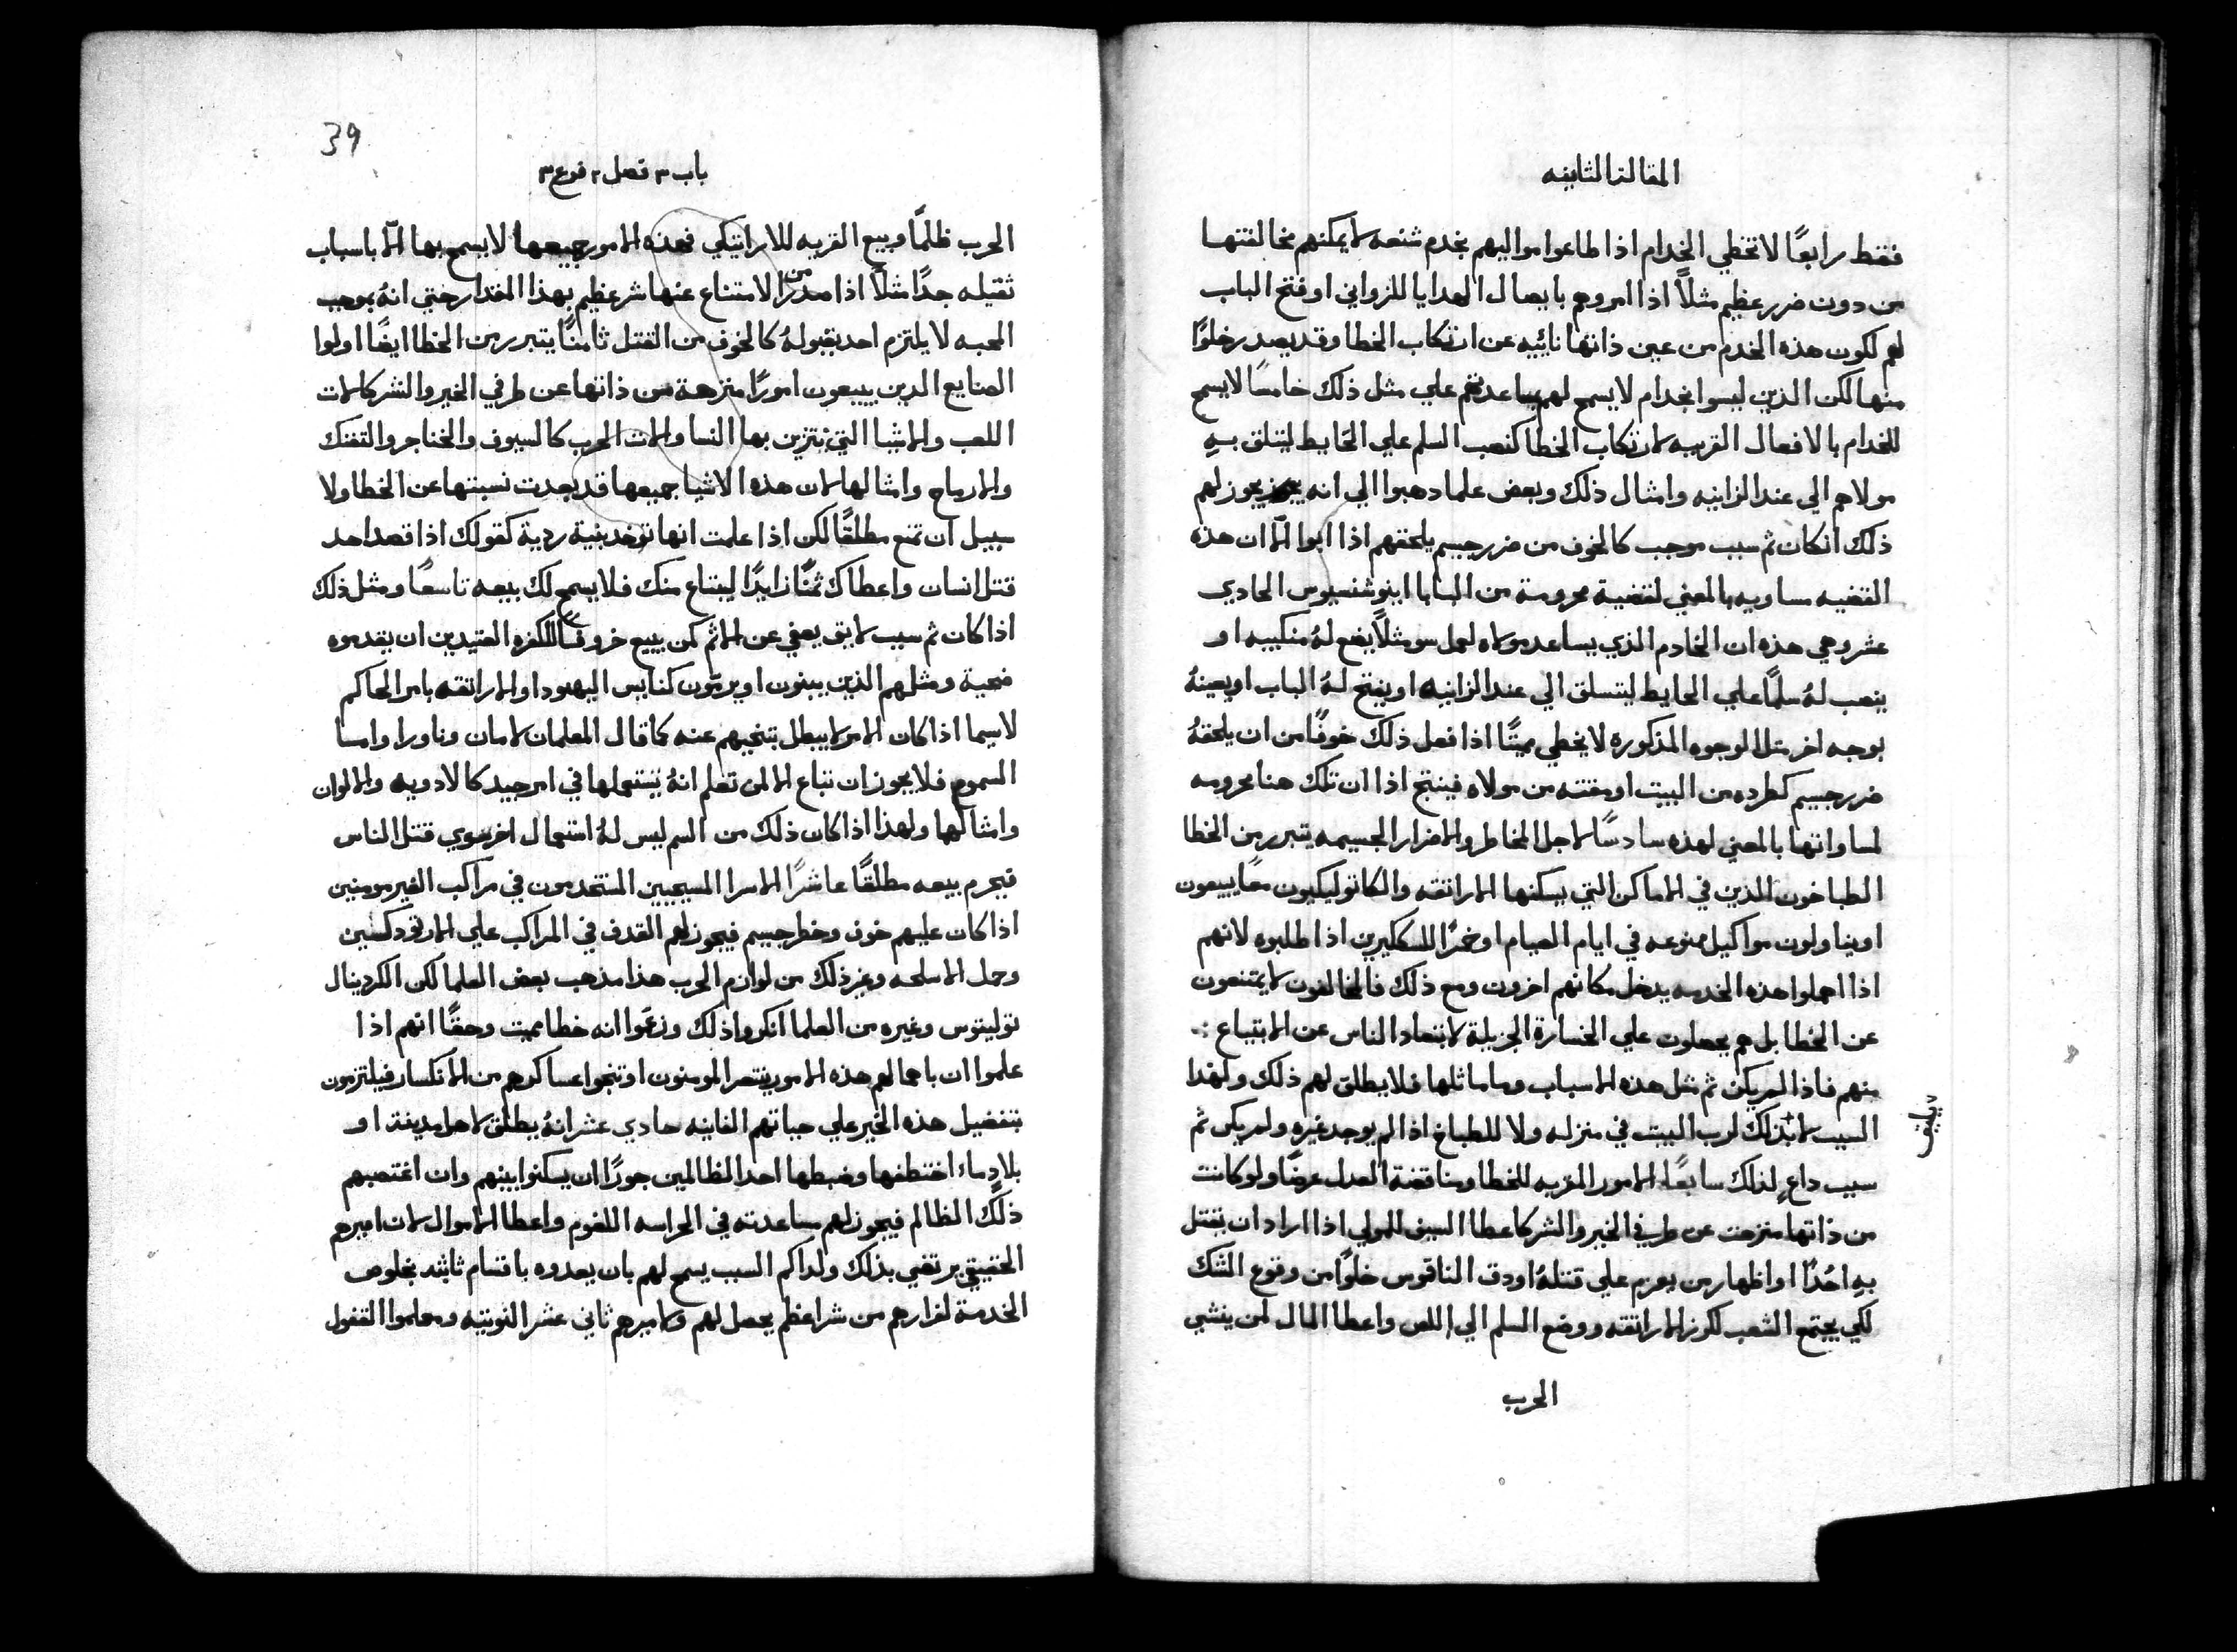 المقالة الثانيه
فقط رابعًا لا تخطي الخدام اذا طاعوا مواليهم بخدم شنعه لا يمكنهم مخالفتها
من دون ضرر عظيم مثلاً اذا امروهم بايصال الهدايا للزواني او فتح الباب
لهم لكون هذه الخدم من عين ذاتها نائيه عن ارتكاب الخطا وقد يصدر خلوًا
منها لكن الذين ليسوا بخدام لا يسمح لهم بمساعدتهم علي مثل ذلك خامسًا لا يسمح
للخدام بالافعال القريبه لارتكاب الخطا كنصب السلم علي الحايط ليتسلق بهِ
مولاهم الي عند الزانيه وامثال ذلك وبعض علما دهبوا الي انه يجوز لهم
ذلك ان كان ثم سبب موجب كالخوف من ضرر جسيم يلحقهم اذا ابوا الّا ان هذه
القضيه مساويه بالمعني لقضية محرومة من البابا اينوشنسيوس الحادي
عشر وهي هذه ان الخادم الذي يساعد مولاه لعمل سو مثلاً يضع لهُ منكبيه او
ينصب لهُ سلمًا علي الحايط ليتسلق الي عند الزانيه او يفتح لهُ الباب او يعينهُ
بوجه اخر مثل الوجوه المذكوره لا يخطي مميتًا اذا فعل ذلك خوفًا من ان يلحقهُ
ضرر جسيم كطرده من البيت او مقته من مولاه فينتج اذا ان تلك هنا محرومه
لمساواتها بالمعني لهذه سادسًا لاجل المخاطر والاضرار الجسيمه يتبرر من الخطا
الطباخون الذين في الاماكن التي يسكنها الاراتقه والكاتوليكيون معًا يبيعون
او يناولون مواكيل ممنوعه في ايام الصيام او خمرًا للسكيرين اذا طلبوه لانهم
اذا اهملوا هذه الخدمه يدخل مكانهم اخرون ومع ذلك فالمخالفون لا يمتنعون
عن الخطا بل هم يحصلون علي الخسارة الجزيلة لابتعاد الناس عن الابتياع
منهم فاذا لم يكن ثم مثل هذه الاسباب وما ماثلها فلا يطلق لهم ذلك ولهذا
السبب لا كذلك لرب البيت في منزله ولا للطباخ اذا لم يوجد غيره ولم يكن ثم
سبب داعٍ لذلك سابعًا الامور القريبه للخطا ومناقضة العدل عرضًا ولو كانت
من ذاتها منزهت عن طرفي الخير والشر كاعطا السيف للمولي اذا اراد ان يقتل
بهِ احدًا او اظهار من يعزم علي قتلهُ او دق الناقوس خلوًا من وقوع الشك
لكي يجتمع الشعب لكرز الاراتقه ووضع السلم الي اللص واعطا المال لمن ينشي
الحرب
39
باب ٣ فصل ٢ فرع ٣
الحرب ظلمًا وبيع القريه للاراتيكي فهذه الامور جميعها لا يسمح بها الّا باسباب
ثقيله جدًا مثلاً اذا صدر من الامتناع عنها شر عظيم بهذا المقدار حتي انهُ بموجب
المحبه لا يلتزم احد بقبولهُ كالخوف من القتل ثامنًا يتبرر من الخطا ايضًا اولوا
الصنايع الدين يبيعون امورًا منزهة من ذاتها عن طرفي الخير والشر كالات
اللعب والاشيا التي تتزين بها النسا والات الحرب كالسيوف والخناجر والتفنك
والارماح وامثالها لان هذه الاشيا جميعها قد بعدت نسبتها عن الخطا ولا
سبيل ان تمنع مطلقًا لكن اذا علمت انها توخد بنية ردية كقولك اذا قصد احد
قتل انسان واعطاك ثمنًا زايدًا ليبتاع منك فلا يسمح لك بيعه تاسعًا ومثل ذلك
اذا كان ثم سبب لايق يعفي عن الاثم كمن يبيع خروفًا للكفره العتيدين ان يقدموه
ضحية ومثلهم الذين يبنون او يرمّون كنايس اليهود او الاراتقه بامر الحاكم
لاسيما اذا كان الامر لا يبطل بتنحيهم عنه كما قال المعلمان لامان وناورا واما
السموم فلا يجوز ان تباع الا لمن تعلم انهُ يستعملها في امر جيد كالادويه والالوان
وامثالها ولهذا اذا كان ذلك من السم ليس لهُ استعمال اخر سوي قتل الناس
فيحرم بيعه مطلقًا عاشرًا الاسرا المسيحيين المستخدمون في مراكب الغير مومنين
اذا كان عليهم خوف وخطر جسيم فيجوز لهم القدف في المراكب علي الارتودكسين
وحمل الاسلحه وغير ذلك من لوازم الحرب هذا مذهب بعض العلما لكن الكردينال
توليتوس وغيره من العلما انكروا ذلك وزعموا انه خطا مميت وحقًا انهم اذا
علموا ان باهمالهم هذه الامور ينتصر المومنون او تنجوا عساكرهم من الانكسار فيلتزمون
بتفضيل هذه الخير علي حياتهم الفانيه حادي عشر انهُ يطلق لاهل مدينة او
بلاد ما اختطفها وضبطها احد الظالمين جورًا ان يسكنوا بينهم وان اغتصبهم
ذلك الظالم فيجوز لهم مساعدته في الحراسه اللغوم واعطا الاموال لان اميرهم
الحقيقي يرتضي بذلك ولداكم السبب يسمح لهم بان يعدوه باقسام ثابته بخلوص
الخدمة لفرارهم من شر اعظم يحصل لهم ولاميرهم ثاني عشر النوتيه ومعلموا القفول